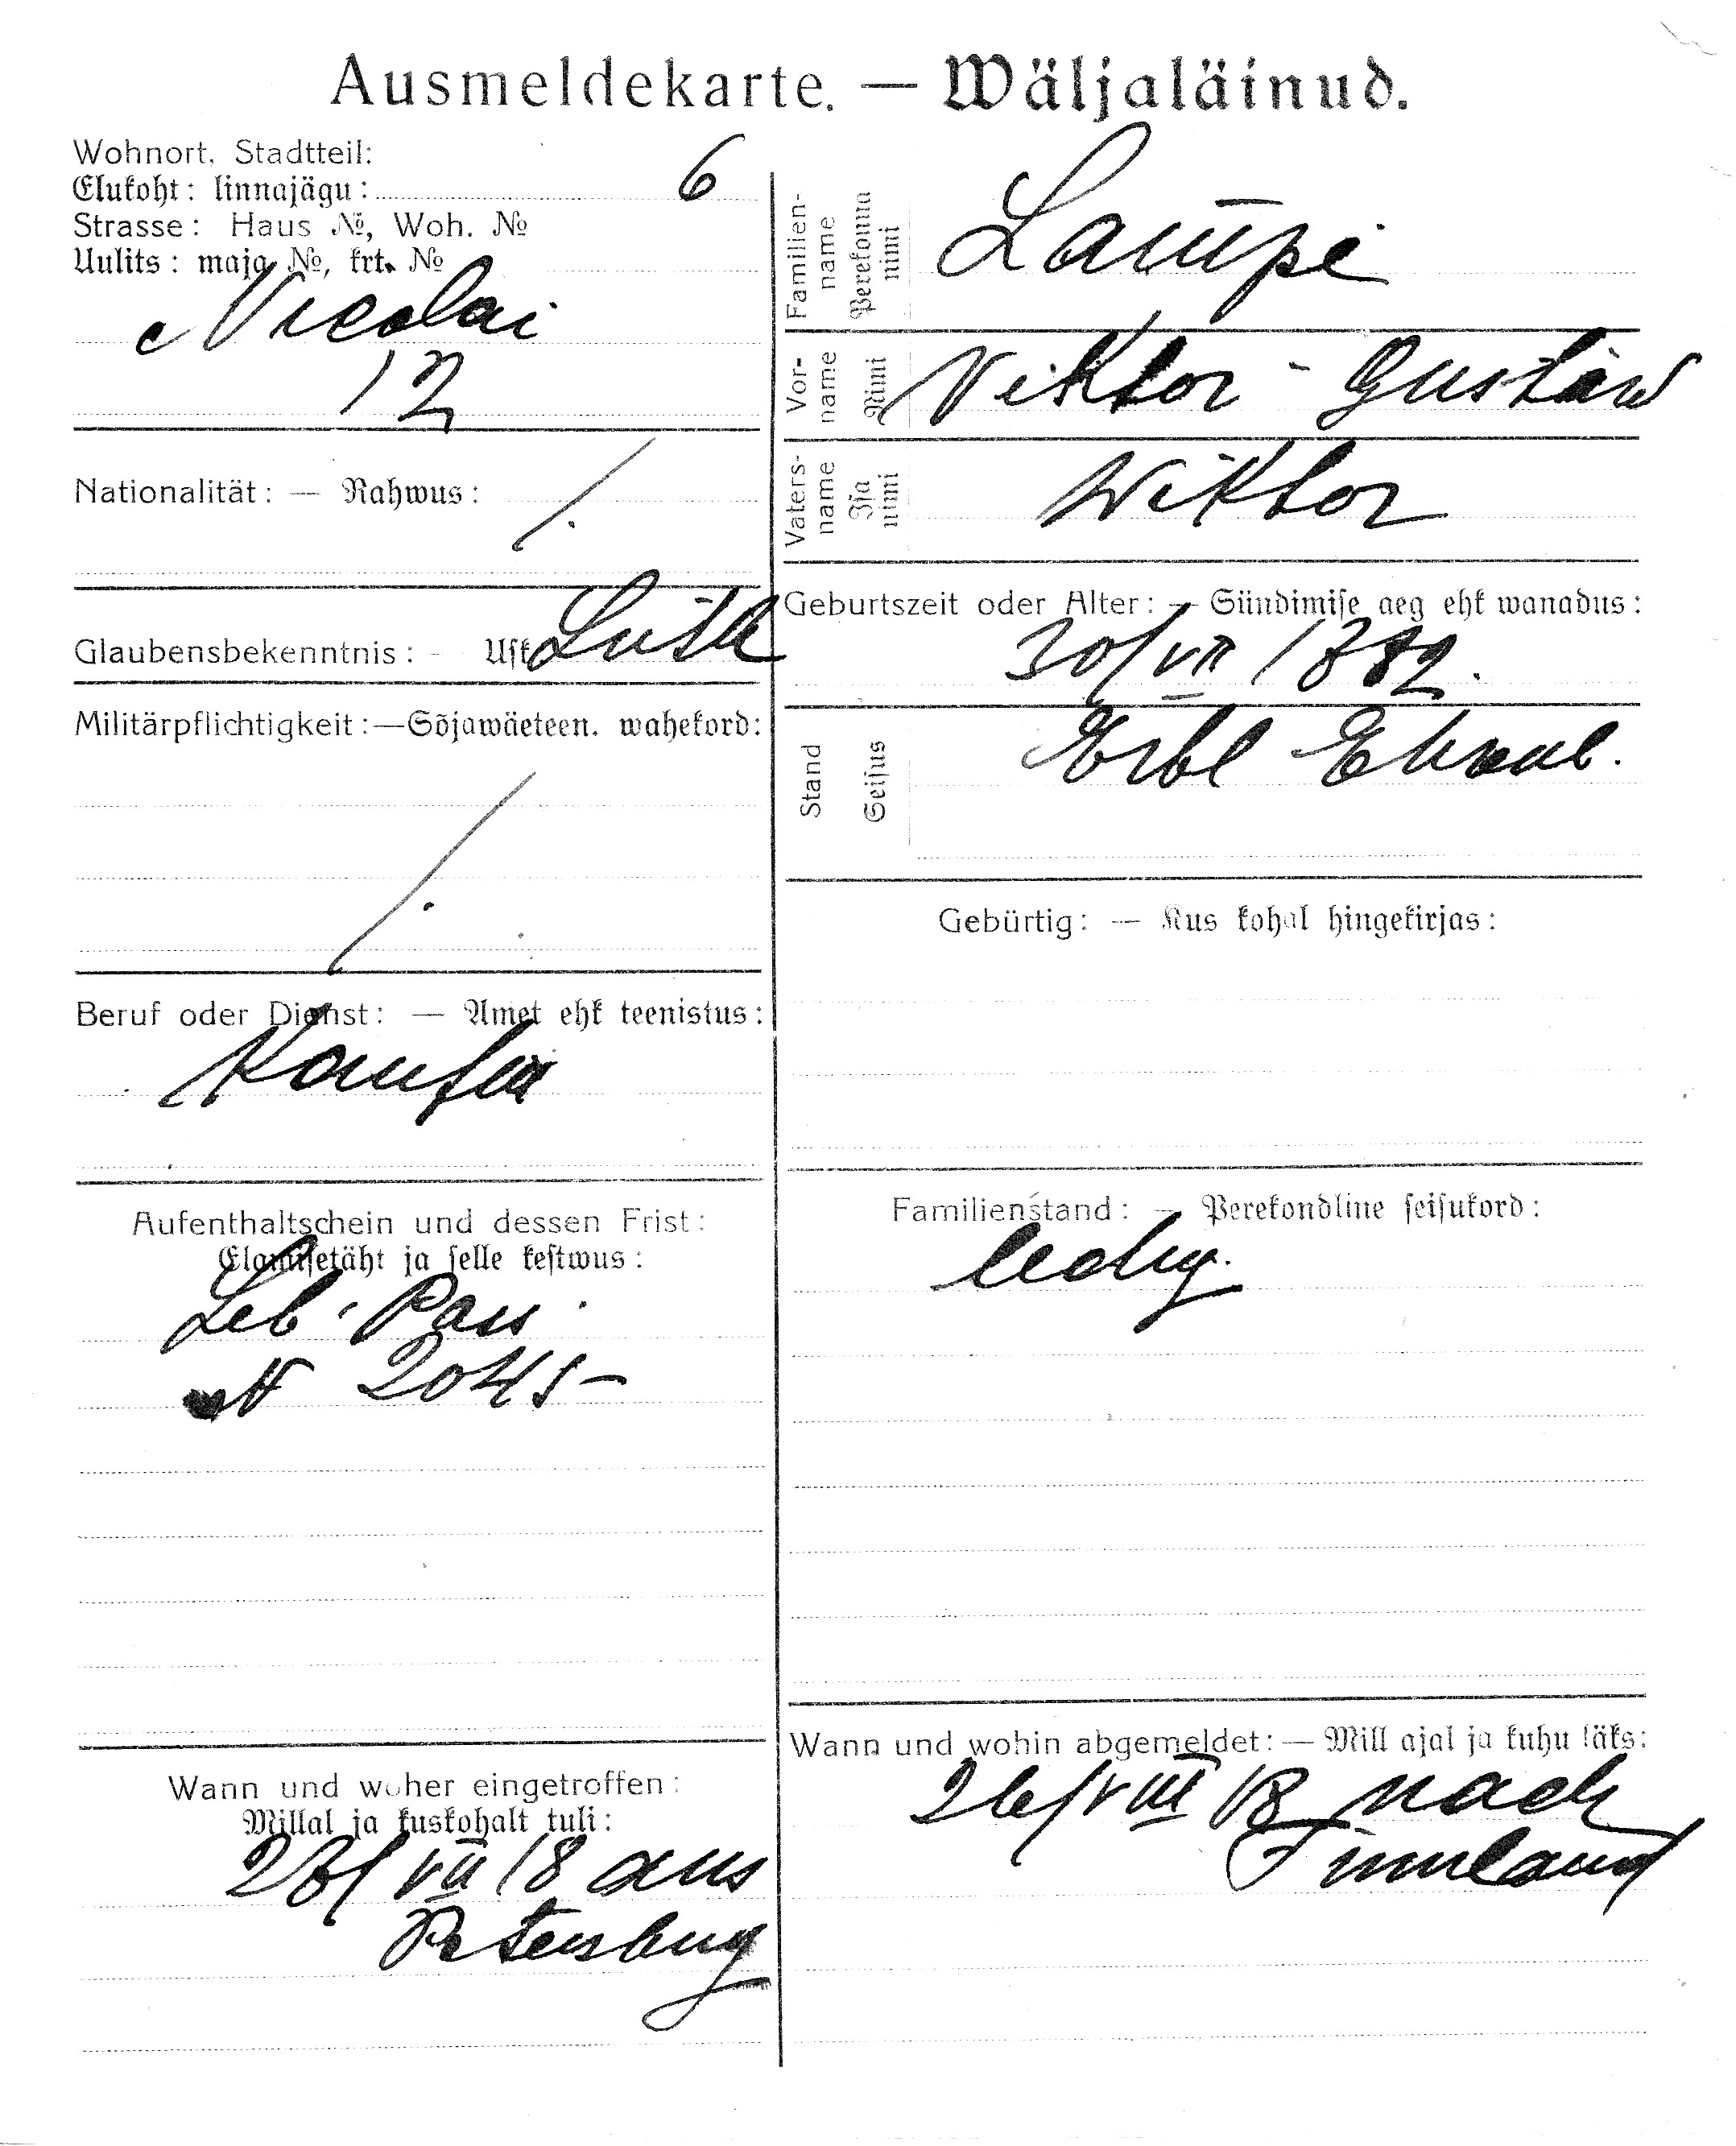 Ausmeldekarte. — Wäljaläinud.
Wohnort, Stadtteil:
Elukoht: linnajägu: 6
Strasse: Haus №, Woh. №
Uulits: maja №, krt. №
Nicolai
12
Nationalität: — Rahwus:
Glaubensbekenntnis: - Usk Luth
Militärpflichtigkeit: — Sõjawäeteen. wahekord:
Beruf oder Dienst: — Amet ehk teenistus:
Aufenthaltschein und dessen Frist:
Elamisetäht ja selle kestwus:
Leb. Pass
N 2045-
Wann und woher eingetroffen:
Millal ja kuskohalt tuli:
VII 18 aus
Petersburg
Familien-
name
Perekonna
nimi
Vor-
name
Nimi
Viktor - Gustaw
Vaters-
name
Isa
nimi
Wiktor
Geburtszeit oder Alter: — Sündimise aeg ehk wanadus:
30/VII 1882.
Stand
Seisus
Erbl Ehrenb.
Gebürtig: — Kus kohal hingekirjas:
Familienstand: — Perekondline seisukord:
ledig.
Wann und wohin abgemeldet: — Mill ajal ja kuhu läks:
26/VIII 18 nach
Finnland